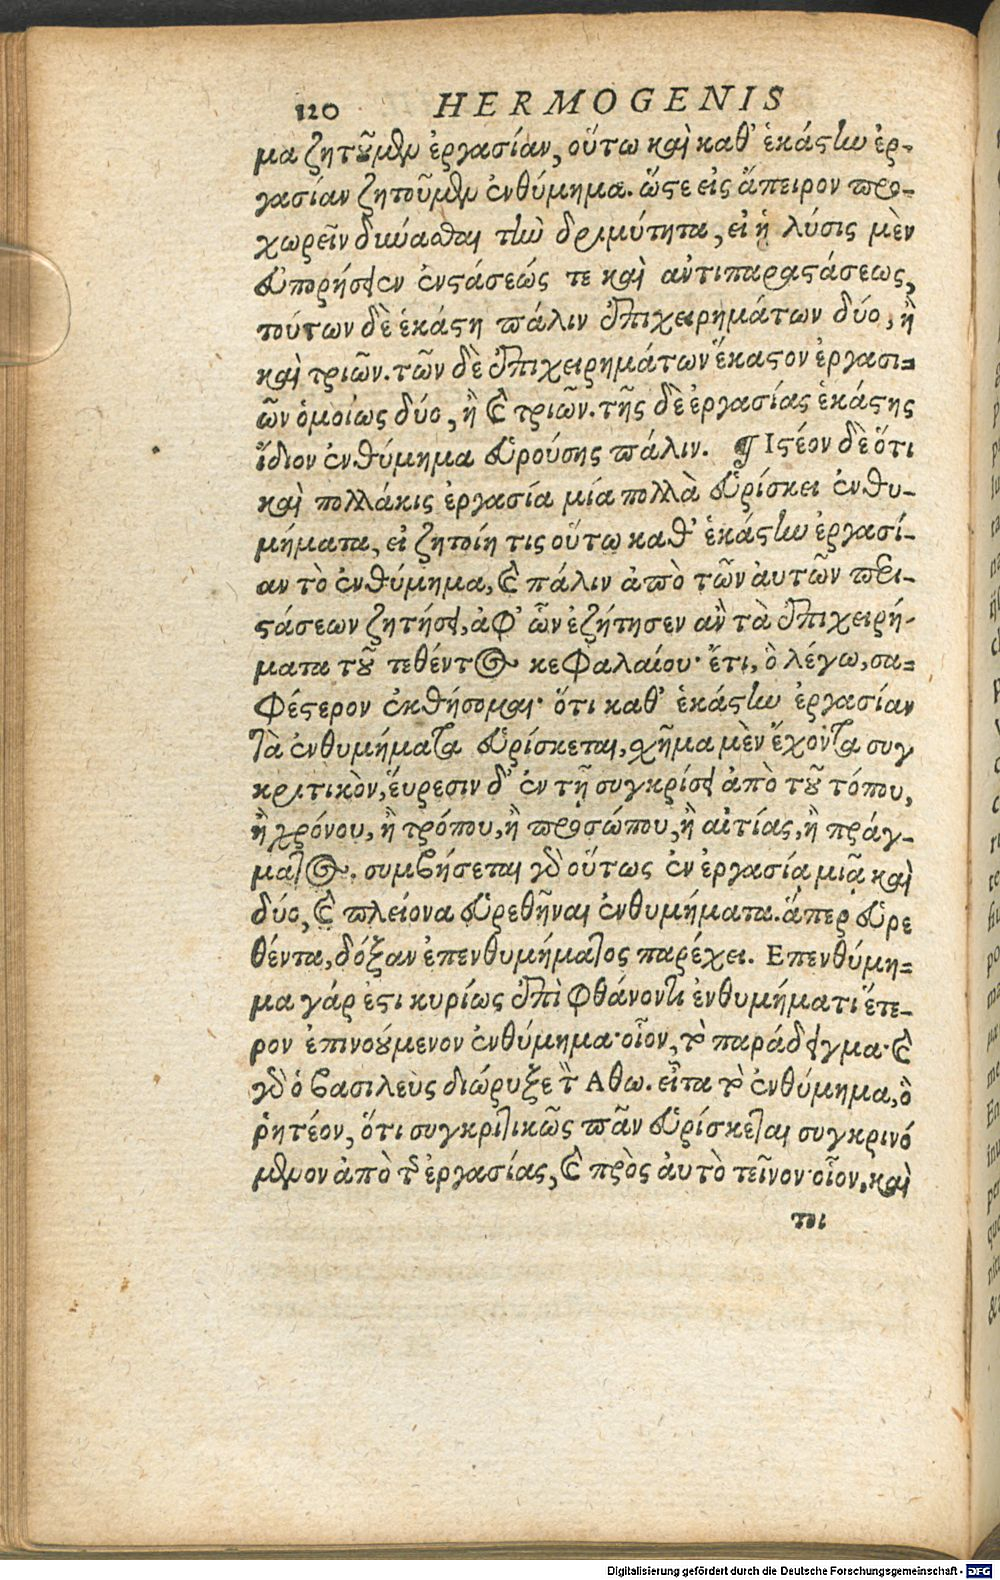 120 HERMOGENIS
μα ζητοῦμεν ἐργασίαν, οὕτω καὶ καθ' ἑκάστην ἐρ-
γασίαν ζητοῦμεν ἐνθύμημα. ὥστε εἰς ἄπειρον προ-
χωρεῖν δύνασθαι τὴν δριμύτητα, εἰ ἡ λύσις μὲν
εὐπορήσει ἐν ἐνστάσεώς τε καὶ ἀντιπαραστάσεως,
τούτων δὲ ἑκάστη πάλιν ἐπιχειρημάτων δύο, ἢ
καὶ τριῶν. τῶν δὲ ἐπιχειρημάτων ἕκαστον ἐργασι-
ῶν ὁμοίως δύο, ἢ καὶ τριῶν. τῆς δὲ ἐργασίας ἑκάστης
ἴδιον ἐνθύμημα εὑρούσης πάλιν. ¶ Ιστέον δὲ ὅτι
καὶ πολλάκις ἐργασία μία πολλὰ εὑρίσκει ἐνθυ-
μήματα, εἰ ζητοίη τις οὕτω καθ' ἑκάστην ἐργασί-
αν τὸ ἐνθύμημα, καὶ πάλιν ἀπὸ τῶν αὐτῶν περι-
στάσεων ζητήσει, ἀφ' ὧν ἐζήτησεν ἂν τὰ ἐπιχειρή-
ματα τοῦ τεθέντος κεφαλαίου· ἔτι, ὃ λέγω, σα-
φέστερον ἐκθήσομαι· ὅτι καθ' ἑκάστην ἐργασίαν
τὰ ἐνθυμήματα εὑρίσκεται, σχῆμα μὲν ἔχοντα συγ
κριτικὸν, εὕρεσιν δ' ἐν τῇ συγκρίσει ἀπὸ τοῦ τόπου,
ἢ χρόνου, ἢ τρόπου, ἢ προσώπου, ἢ αἰτίας, ἢ πράγ-
ματος. συμβήσεται γὰρ οὕτως ἐν ἐργασία μιᾷ καὶ
δύο, καὶ πλείονα εὑρεθῆναι ἐνθυμήματα. ἅπερ εὑρε
θέντα, δόξαν ἐπενθυμήματος παρέχει. Επενθύμη-
μα γάρ ἐστι κυρίως ἐπὶ φθάνοντι ἐνθυμήματι ἕτε-
ρον ἐπινοούμενον ἐνθύμημα· οἷον, τὸ παράδειγμα· καὶ
γὰρ ὁ βασιλεὺς διώρυξε τὸν Αθω. εἶτα τὸ ἐνθύμημα, ὃ
ῥητέον, ὅτι συγκριτικῶς πᾶν εὑρίσκεται συγκρινό
μενον ἀπὸ τῆς ἐργασίας, καὶ πρὸς αὐτὸ τεῖνον· οἷον, καὶ
ται
Digitalisierung gefördert durch die Deutsche Forschungsgemeinschaft - DFG